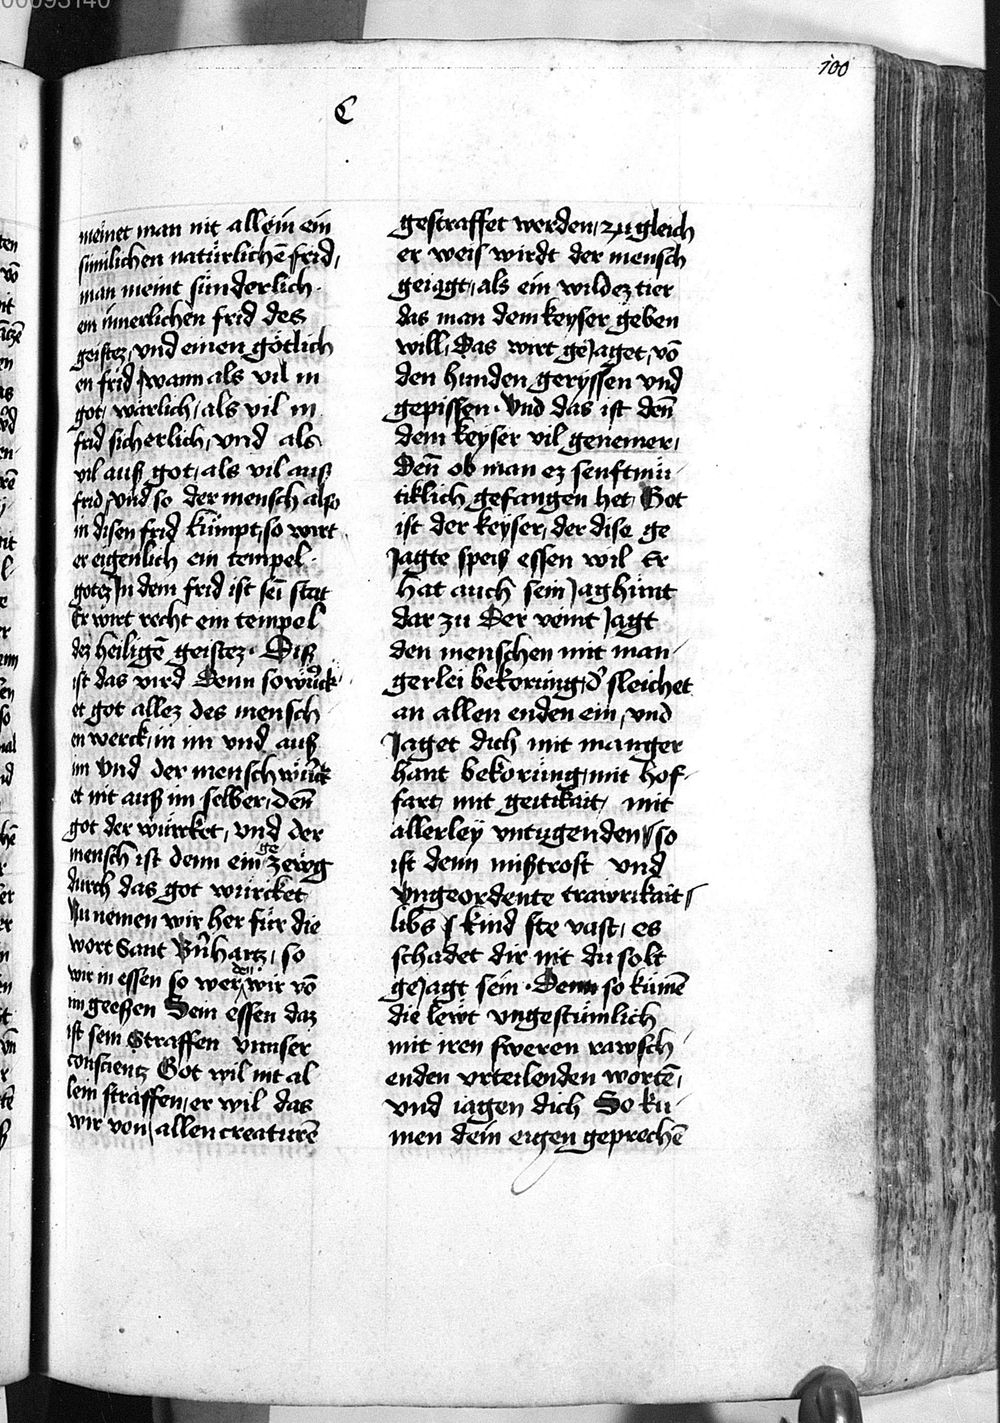 00093140
100
C
meinet man nit allein ein
sinnlichen natürlichē frid,
man meint sünderlich
ein innerlichen frid des
geistez, vnd einen götlich
en frid wann als vil in
got, wärlich, als vil in
frid sicherlich, vnd als
vil auß got, als vil auß
frid vnd so der mensch also
in disen frid kümpt, so wirt
er eigenlich ein tempel
gotez In dem frid ist sei stat
Er wirt recht ein tempel
dez heiligē geistez. Diß
ist das vird Denn so würck
et got allez des mensch
en werck, in im vnd auß
im Vnd der mensch würck
et nit auß im selber, deñ
got der würcket, vnd der
mensch ist denn ein ge zewg
durch das got würcket
Nu nemen wir her für die
wort Sant Bñhartz, so
wir in essen so werden wir vō
im geeßen Sein essen daz
ist sein Straffen vnnser
conscientz Got wil nit al
lein straffen, er wil das
wir von allen creaturē
gestraffet werden, zu gleich
er weis wirdt der mensch
geiagt, als ein wildez tier
das man dem keyser geben
will, Das wirt geJaget, vō
den hunden geryssen vnd
gepissen. Vnd das ist deñ
dem keyser vil genemer,
Deñ ob man ez senftmü
tiklich gefangen het, Got
ist der keyser, der dise ge
Jagte speis essen wil Er
hat auch sein Jaghünt
dar zu Der veint Jagt
den menschen mit man
gerlei bekorüng, d' sleichet
an allen enden ein, vnd
Jaget dich mit manger
hant bekorüng, mit hof
fart, mit geitikait, mit
allerley vntugenden, so
ist denn mißtrost vnd
Vngeordente trawrikait,
libs kind ste vast, es
schadet dir nit du solt
geJagt sein. Denn so kümē
die lewt vngestümlich
mit iren sweren rawsch
enden vrteilenden wortē,
vnd iagen dich So ku
men dein eigen geprechē